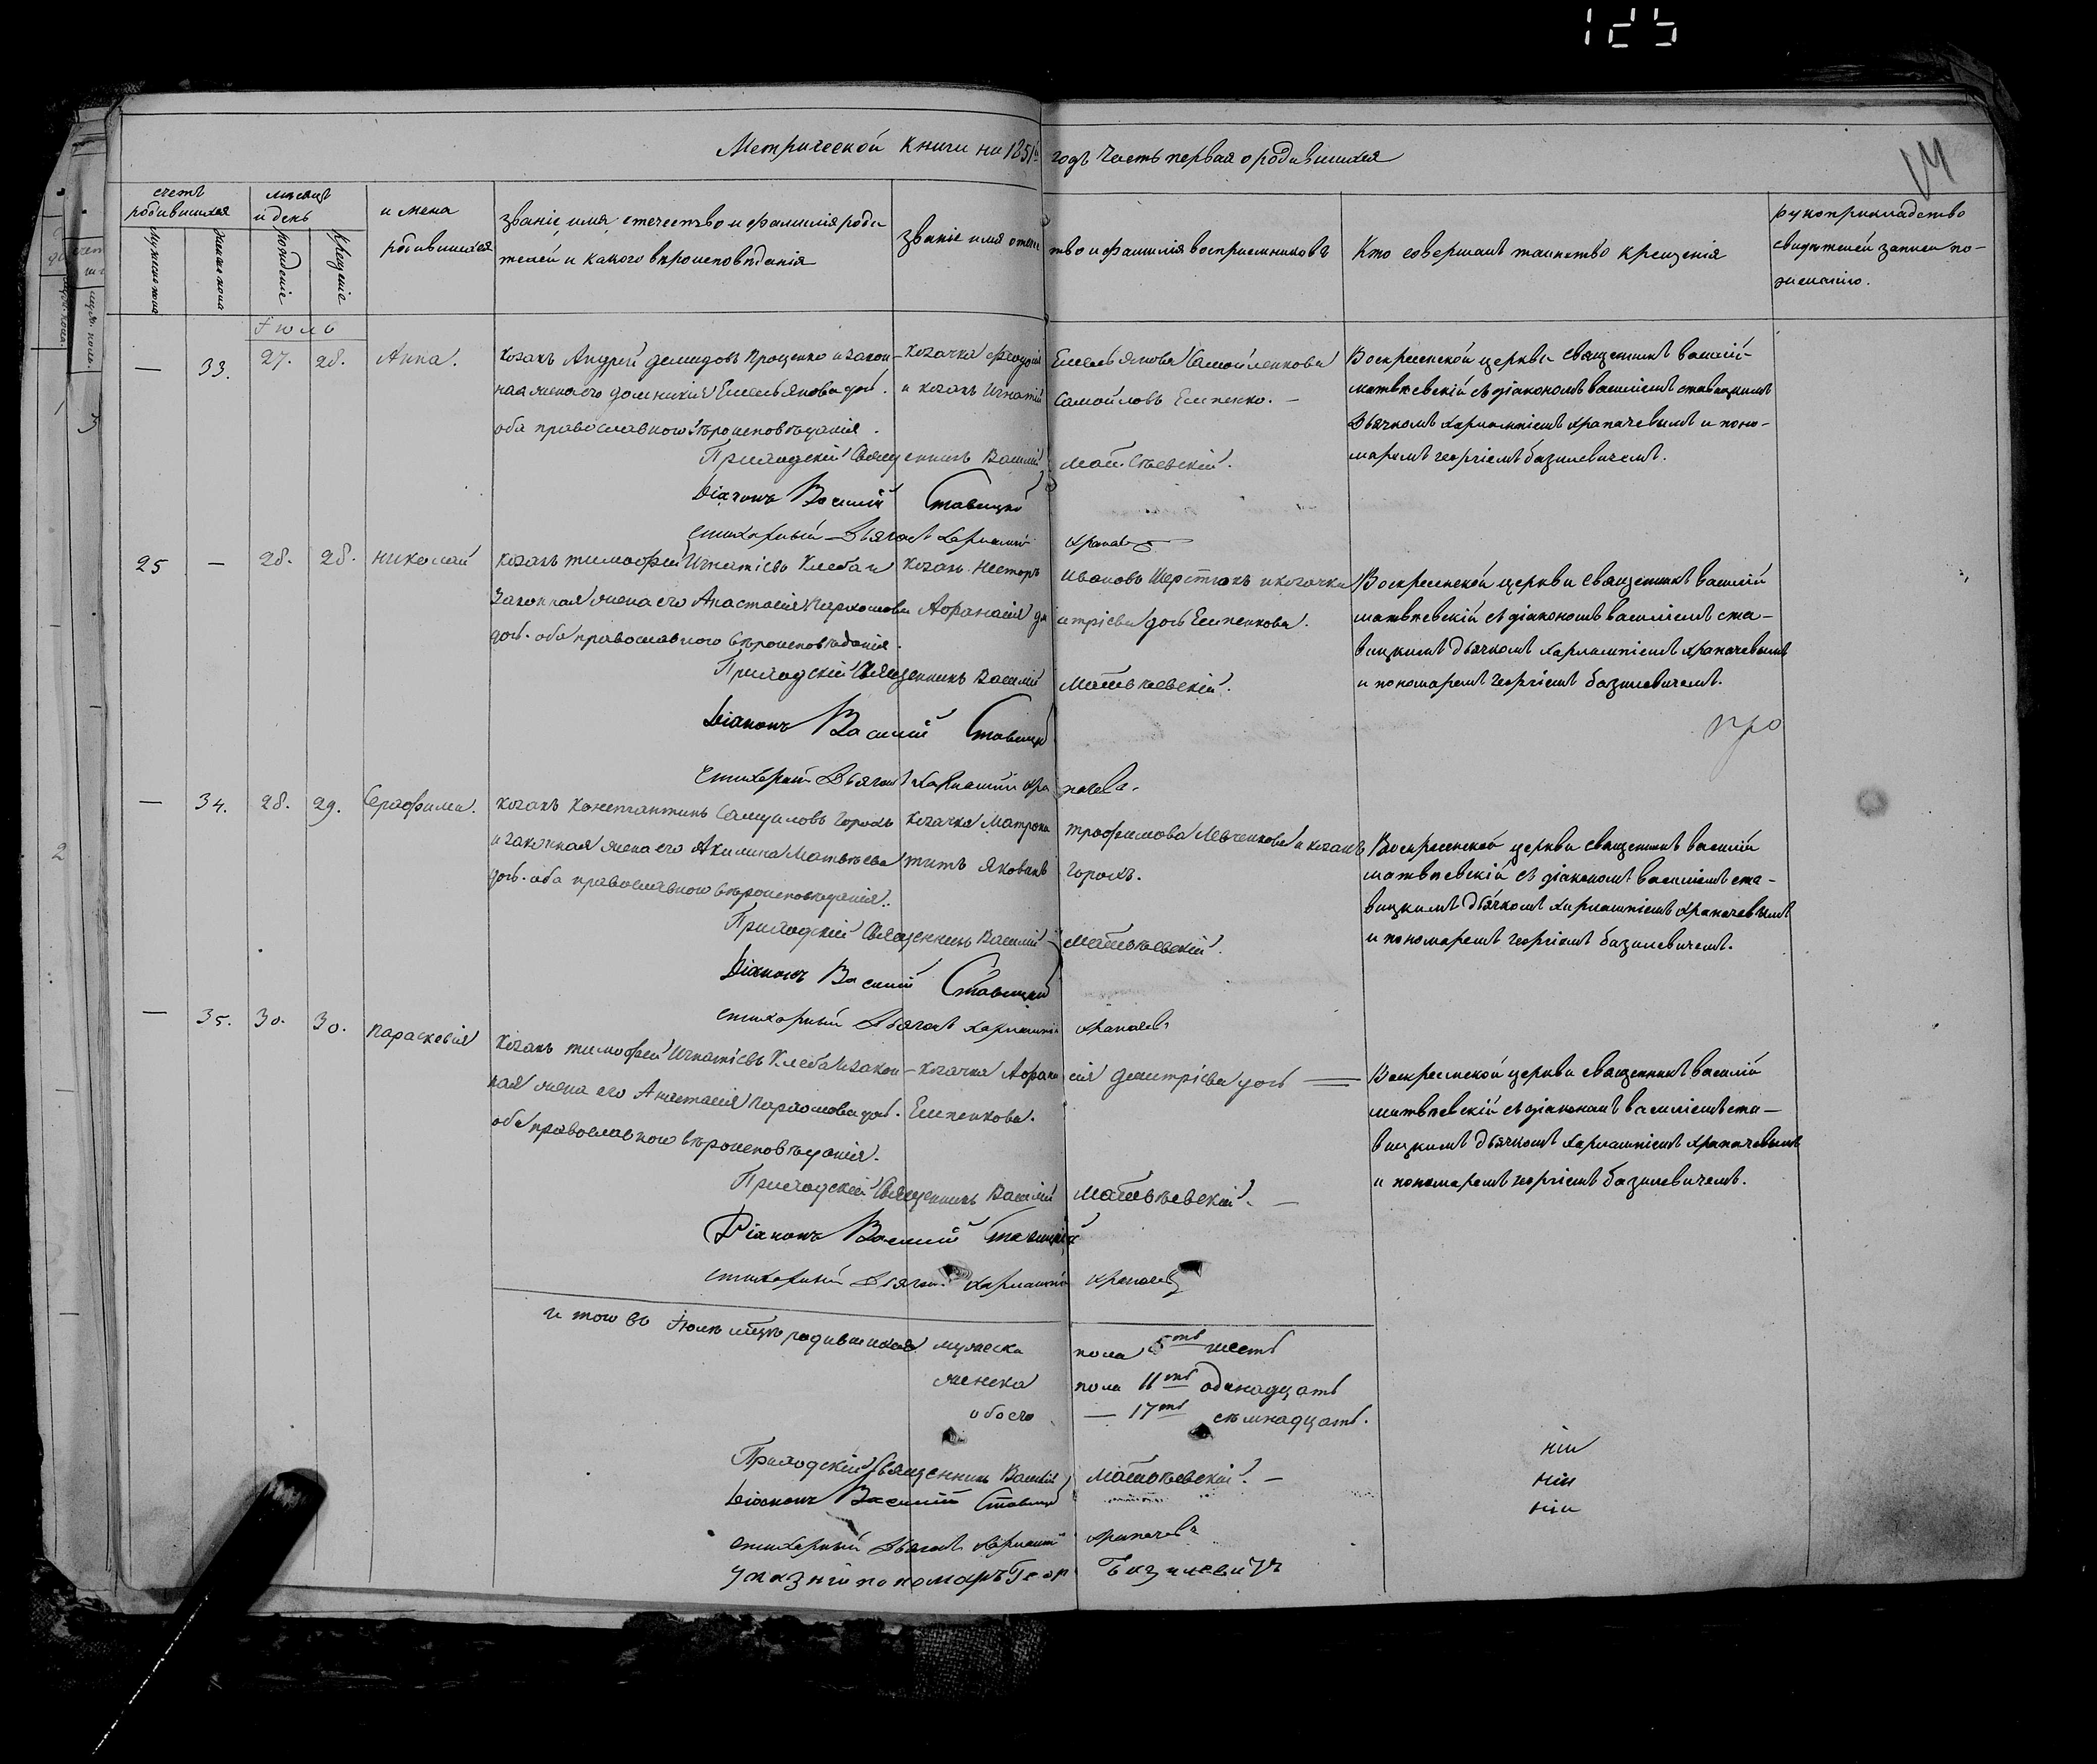 125
Метрической книги на 1851й годъ Часть первая о родившихся
14
счетъ родившихся
мужеска пола
женска пола
месяцъ и день
рожденіе
крещеніе
имена родившихся
званіе, имя, отечество и фамилія роди
телей и какого вѣроисповѣданія
званіе имя отечество и фамилія воспріемниковъ
Кто совершалъ таинство крещенія
рукоприкладство
свидѣтелей записи по
желанію.
Іюль
— 33. 27. 28. Анна.
козакъ Андрей Демидовъ Проценко и закон-
ная жена его Домникія Емельянова доч.
оба православного вѣроисповѣданія.
козачка Феодосія Емельянова Самойленкова
и козакъ Игнатій Самойловъ Емпенко. —
Воскресенской церкви священникъ василій
матвѣевскій съ діакономъ василіемъ ставицкимъ
дьячкомъ харлампіемъ храпачевымъ и поно-
маремъ георгіемъ базилевичемъ.
Приходскій Священникъ Василій Матвѣевскій.
Діаконъ Василій Ставицкій
стихарный Дьячокъ Харлампій
25 — 28. 28. николай
козакъ тимофей Игнатіевъ Клеба и
законная жена его Анастасія Пархомова
доч. оба православного вѣроисповѣданія.
козакъ Несторъ Ивановъ Шерстюкъ и козачка
Афанасія димитріева доч Емпенкова.
Воскресенской церкви священникъ василій
матвѣевскій съ діакономъ василіемъ ста-
вицкимъ дьячкомъ харлампіемъ храпачевымъ
и пономаремъ георгіемъ базилевичемъ.
Приходскій Священникъ Василій Матвѣевскій.
про
Діаконъ Василій Ставицкій
стихарный Дьячокъ Харлампій Храпачевъ
— 34. 28. 29. Серафима.
козакъ Константинъ Самуиловъ Горохъ
и законная жена его Акилина Матвѣева
доч. оба православного вѣроисповѣданія.
козачка Матрона трофимова Левченкова и козакъ
титъ Яковивъ Горохъ.
Воскресенской церкви священникъ василій
матвѣевскій съ діакономъ василіемъ ста-
вицкимъ дьячкомъ харлампіемъ храпачевымъ
и пономаремъ георгіемъ базилевичемъ.
Приходскій Священникъ Василій Матвѣевскій.
Діаконъ Василій Ставицкій
стихарный Дьячокъ харлампій храпачевъ
— 35. 30. 30. параскевія
козакъ тимофей Игнатіевъ Клеба и закон-
ная жена его Анастасія Пархомова доч.
оба православного вѣроисповѣданія.
козачка Афанасія димитріева доч —
Емпенкова.
Воскресенской церкви священникъ василій
матвѣевскій съ діакономъ василіемъ ста-
вицкимъ дьячкомъ харлампіемъ храпачевымъ
и пономаремъ георгіемъ базилевичемъ.
Приходскій Священникъ Василій Матвѣевскій. —
Діаконъ Василій Ставицкій
стихарный Дьячокъ харлампій храпачевъ
Итого во Іюлѣ мцѣ родившихся мужеска пола 6ть шесть
женска пола 11ть одинадцать
обоего — 17ть семнадцать.
Приходскій Священникъ Василій Матвѣевскій. —
Діаконъ Василій Ставицкій
стихарный Дьячокъ харлампій храпачевъ
Указній пономаръ Геор Базилевичъ